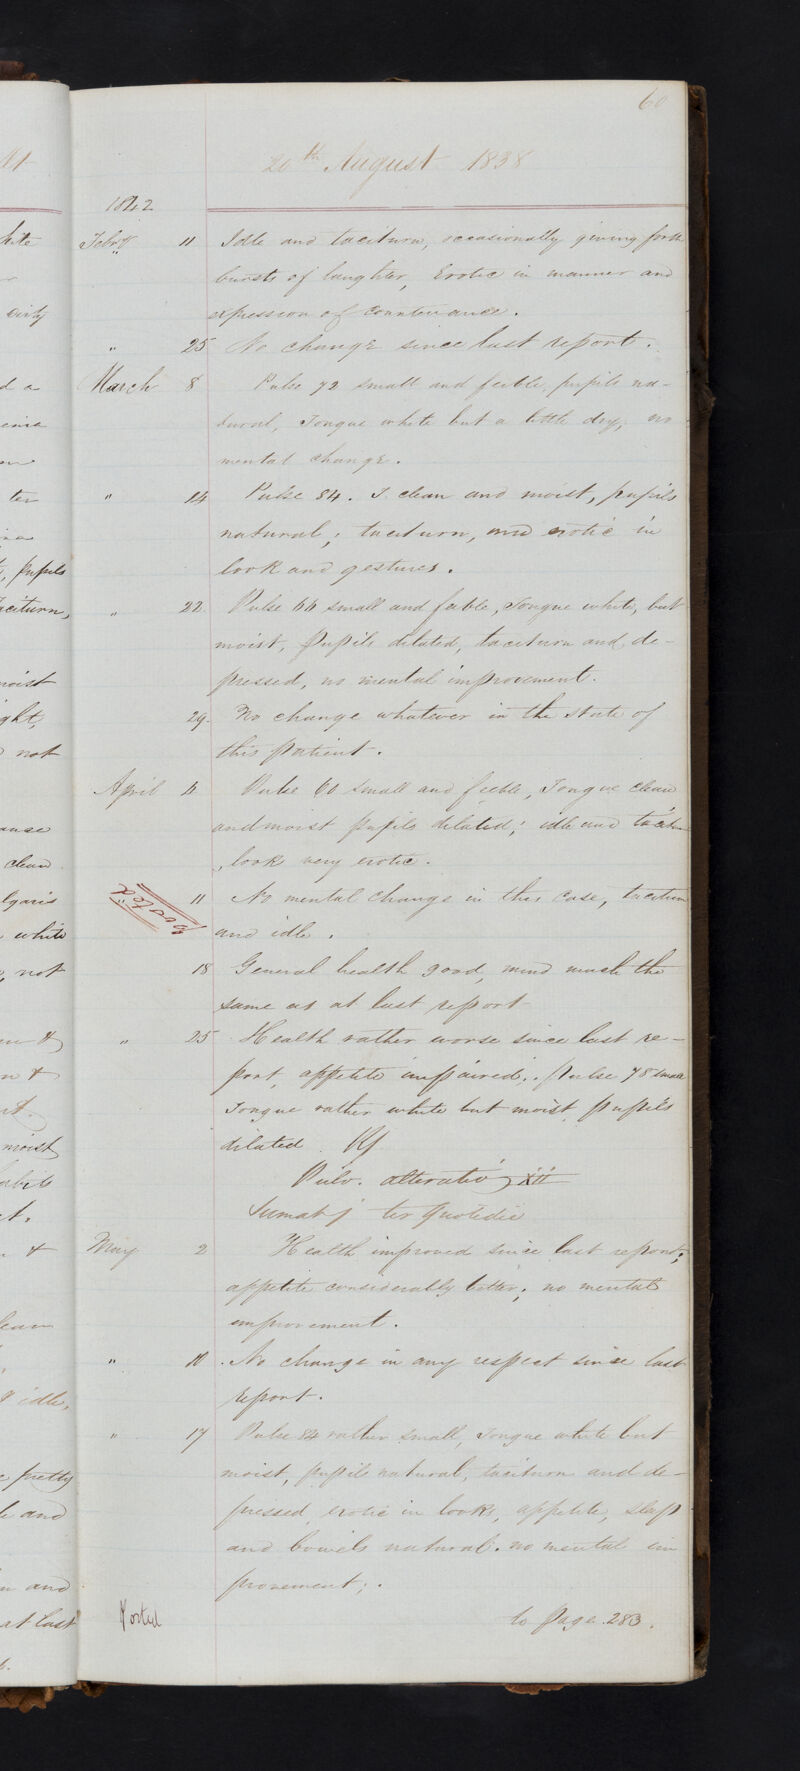 60
20th August 1838
1842
Feby 11 Idle and taciturn, occasionally giving forth
bursts of laughter, Erotic in manner and
expression of countenance.
" 25 No change since last report.
March 8 Pulse 72 small and feeble, pupils na-
tural, Tongue white but a little dry, no
mental change.
" 14 Pulse 84. T. clean and moist, pupils
natural; taciturn, and erotic in
look and gestures.
" 22 Pulse 66 small and feeble, Tongue white, but
moist, Pupils dilated, taciturn and de-
pressed, no mental improvement.
29. No change whatever in the state of
this patient.
April 4 Pulse 60 small and feeble, Tongue clean
and moist pupils dilated; idle and taciturn
, look very erotic.
posted
11 No mental change in this case, taciturn
and idle.
18 General health good, mind much the
same as at last report
" 25 Health rather worse since last re-
port, appetite impaired. Pulse 78 small
Tongue rather white but moist, Pupils
dilated
Pulv. alterativ xii
Sumat j ter Quotidie
May 2 Health improved since last report;
appetite considerably better; no mental
improvement.
" 10. No change in any respect since last
report.
" 17 Pulse 84 rather small, Tongue white but
moist, pupils natural, taciturn and de-
pressed, erotic in looks, appetite, sleep
and bowels natural. no mental im
provement;.
Posted
to page 283.
hite
dirty
d a
ter
, pupils
taciturn,
moist
not
clean
white
, not
moist
habits
idle,
pretty
and
and
at last